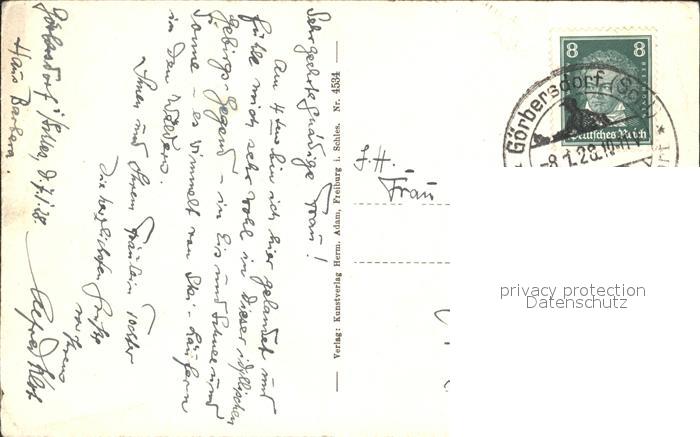 Görbersdorf i/Schles, d. 7.1.28.
Haus Barbara.
Sehr geehrte gnädige Frau!
Am 4 ten bin ich hier gelandet und
fühle mich sehr wohl in dieser idyllischen
Gebirgs-Gegend - in Eis und Schnee und
Sonne - es wimmelt von Ski-Läufern
in den Wäldern.
Ihnen und Ihrem Fräulein Tochter
die herzlichsten Grüße
von Ihrem
Alfred
Verlag: Kunstverlag Herm. Adam, Freiburg i. Schles. Nr. 4534
I.H.
Frau
8 8
Deutsches Reich
Görbersdorf (Schl)
-8.1.28.
privacy protection
Datenschutz